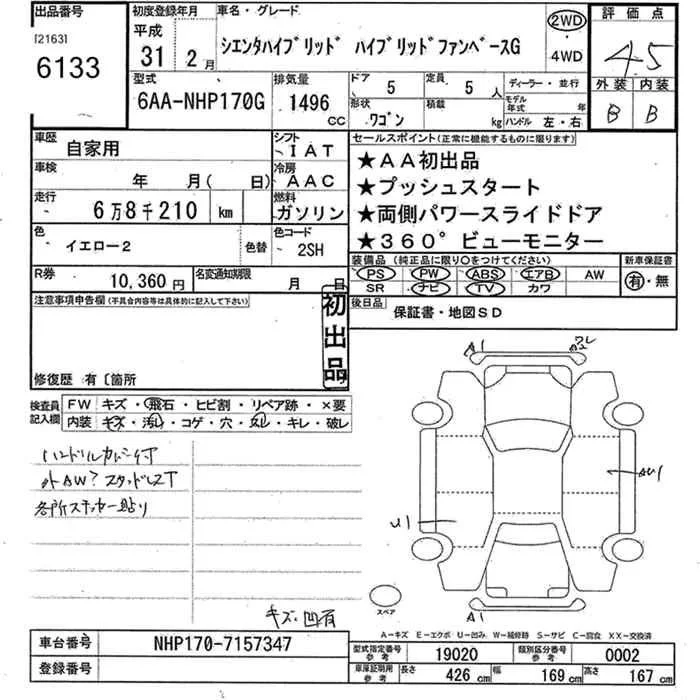 出品番号 初度登録年月 車名・グレード
[2163] 平成
6133 31年 2月 シエンタハイブリッド ハイブリッドファンベースG
2WD・4WD
評価点
4.5
外装 内装
B B
型式 排気量 ドア 定員 ディーラー・並行
6AA-NHP170G 1496cc 5 5人
形状 積載 モデル年式 年
ワゴン kg ハンドル 左・右
車歴 自家用 シフト IAT
車検 年 月(日) 冷房 AAC
走行 6万8千210 km 燃料 ガソリン
色 イエロー2 色替 色コード 2SH
R券 10,360円 名変通知期限 月 日
セールスポイント(正常に機能するものに限ります)
★AA初出品
★プッシュスタート
★両側パワースライドドア
★360°ビューモニター
装備品(純正品に限り○をつけてください) 新車保証書
PS PW ABS エアB AW 有・無
SR ナビ TV カワ
後日品 保証書・地図SD
注意事項申告欄(不具合内容等は具体的に記入して下さい)
初出品
修復歴 有〔箇所
検査員記入欄 FW キズ・飛石・ヒビ割・リペア跡・×要
内装 キズ・汚レ・コゲ・穴・・キレ・破レ
ハンドルカバー付
外AW?スタッドレスT
各所ステッカー貼り
キズ・凹有
A1
U1
A1
スペア
A-キズ E-エクボ U-凹み W-補修跡 S-サビ C-腐食 XX-交換済
車台番号 NHP170-7157347
登録番号
型式指定番号 参考 19020 類別区分番号 参考 0002
車庫証明用 参考 長さ 426cm 幅 169cm 高さ 167cm